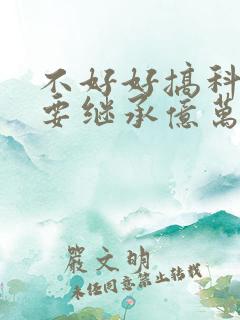 不好好搞科
要继承億萬
嚴文明
未经同意禁止转载